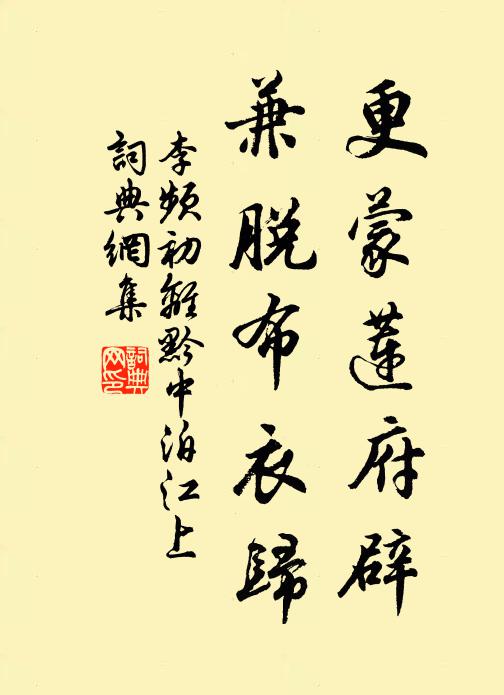 更蒙蓮府辟
兼脱布衣歸
李頻初離黔中泊江上
詞典網集
詞典網印